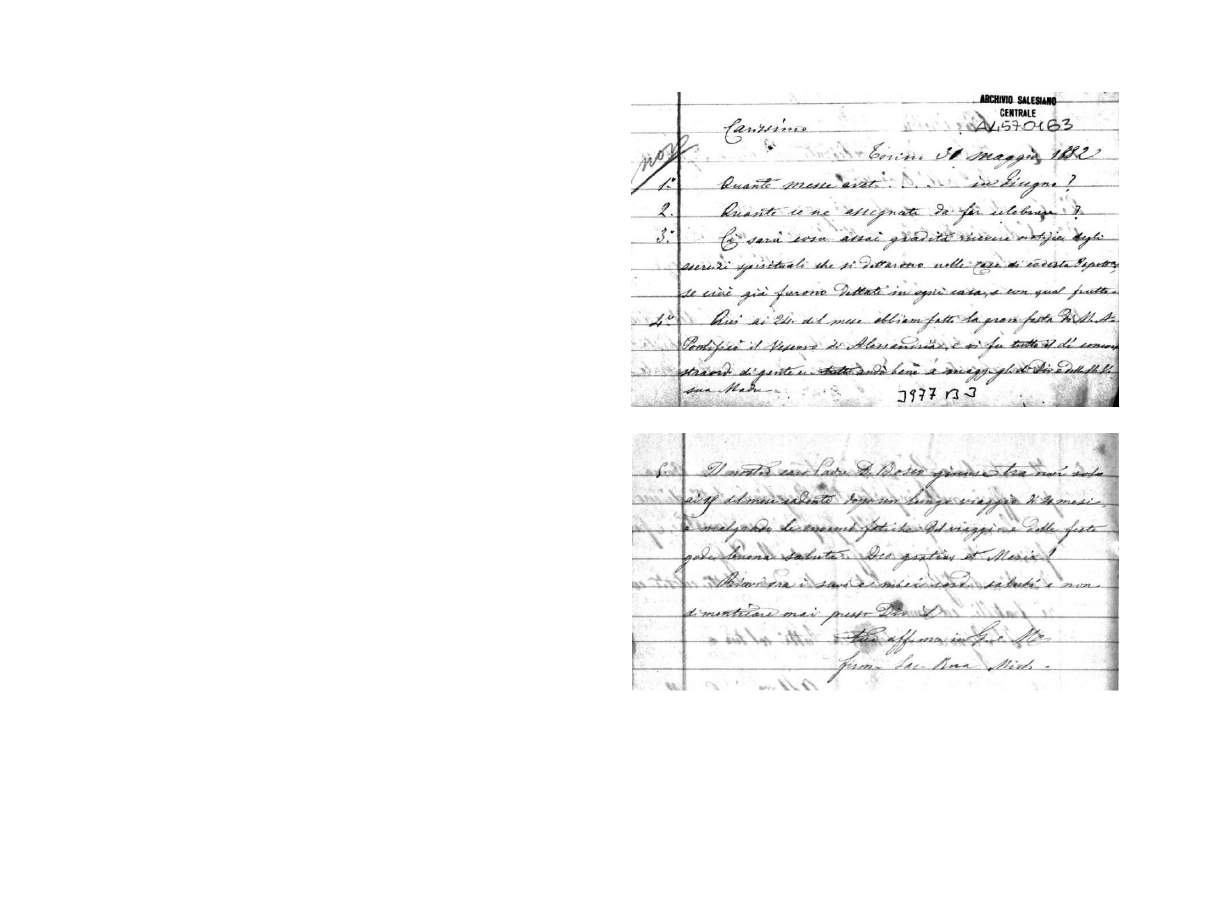 ARCHIVIO SALESIANO
CENTRALE
A4570163
Carissimo
Torino 31 maggio 1882
1° Quante messe avete . . . in Giugno?
2. Quante ce ne assegnate da far celebrare?
3° Ci sarà cosa assai gradita ricevere notizia degli
esercizi spirituali che si dettarono nelle case di codesta Ispett
se cioè già furono dettati in ogni casa, e con qual frutto
4° Qui ai 24 del mese abbiam fatto la gran festa di M. A.
Pontificò il Vescovo di Alessandria, e vi fu tutto il dì concor
straord di gente e tutto andò bene a magg. gl. di Dio e della
sua Madre
3977 B 3
5. Il nostro caro Padre D. Bosco giunse tra noi solo
ai del mese cadente dopo un lungo viaggio di 4 mesi
e malgrado le enormi fatiche del viaggio e delle feste
gode buona salute. Deo gratias et Mariae!
i suoi e miei cord. saluti e non
dimenticare mai presso Dio il
Tuo aff.mo in G. e M.
firm. Sac. Rua Mich.